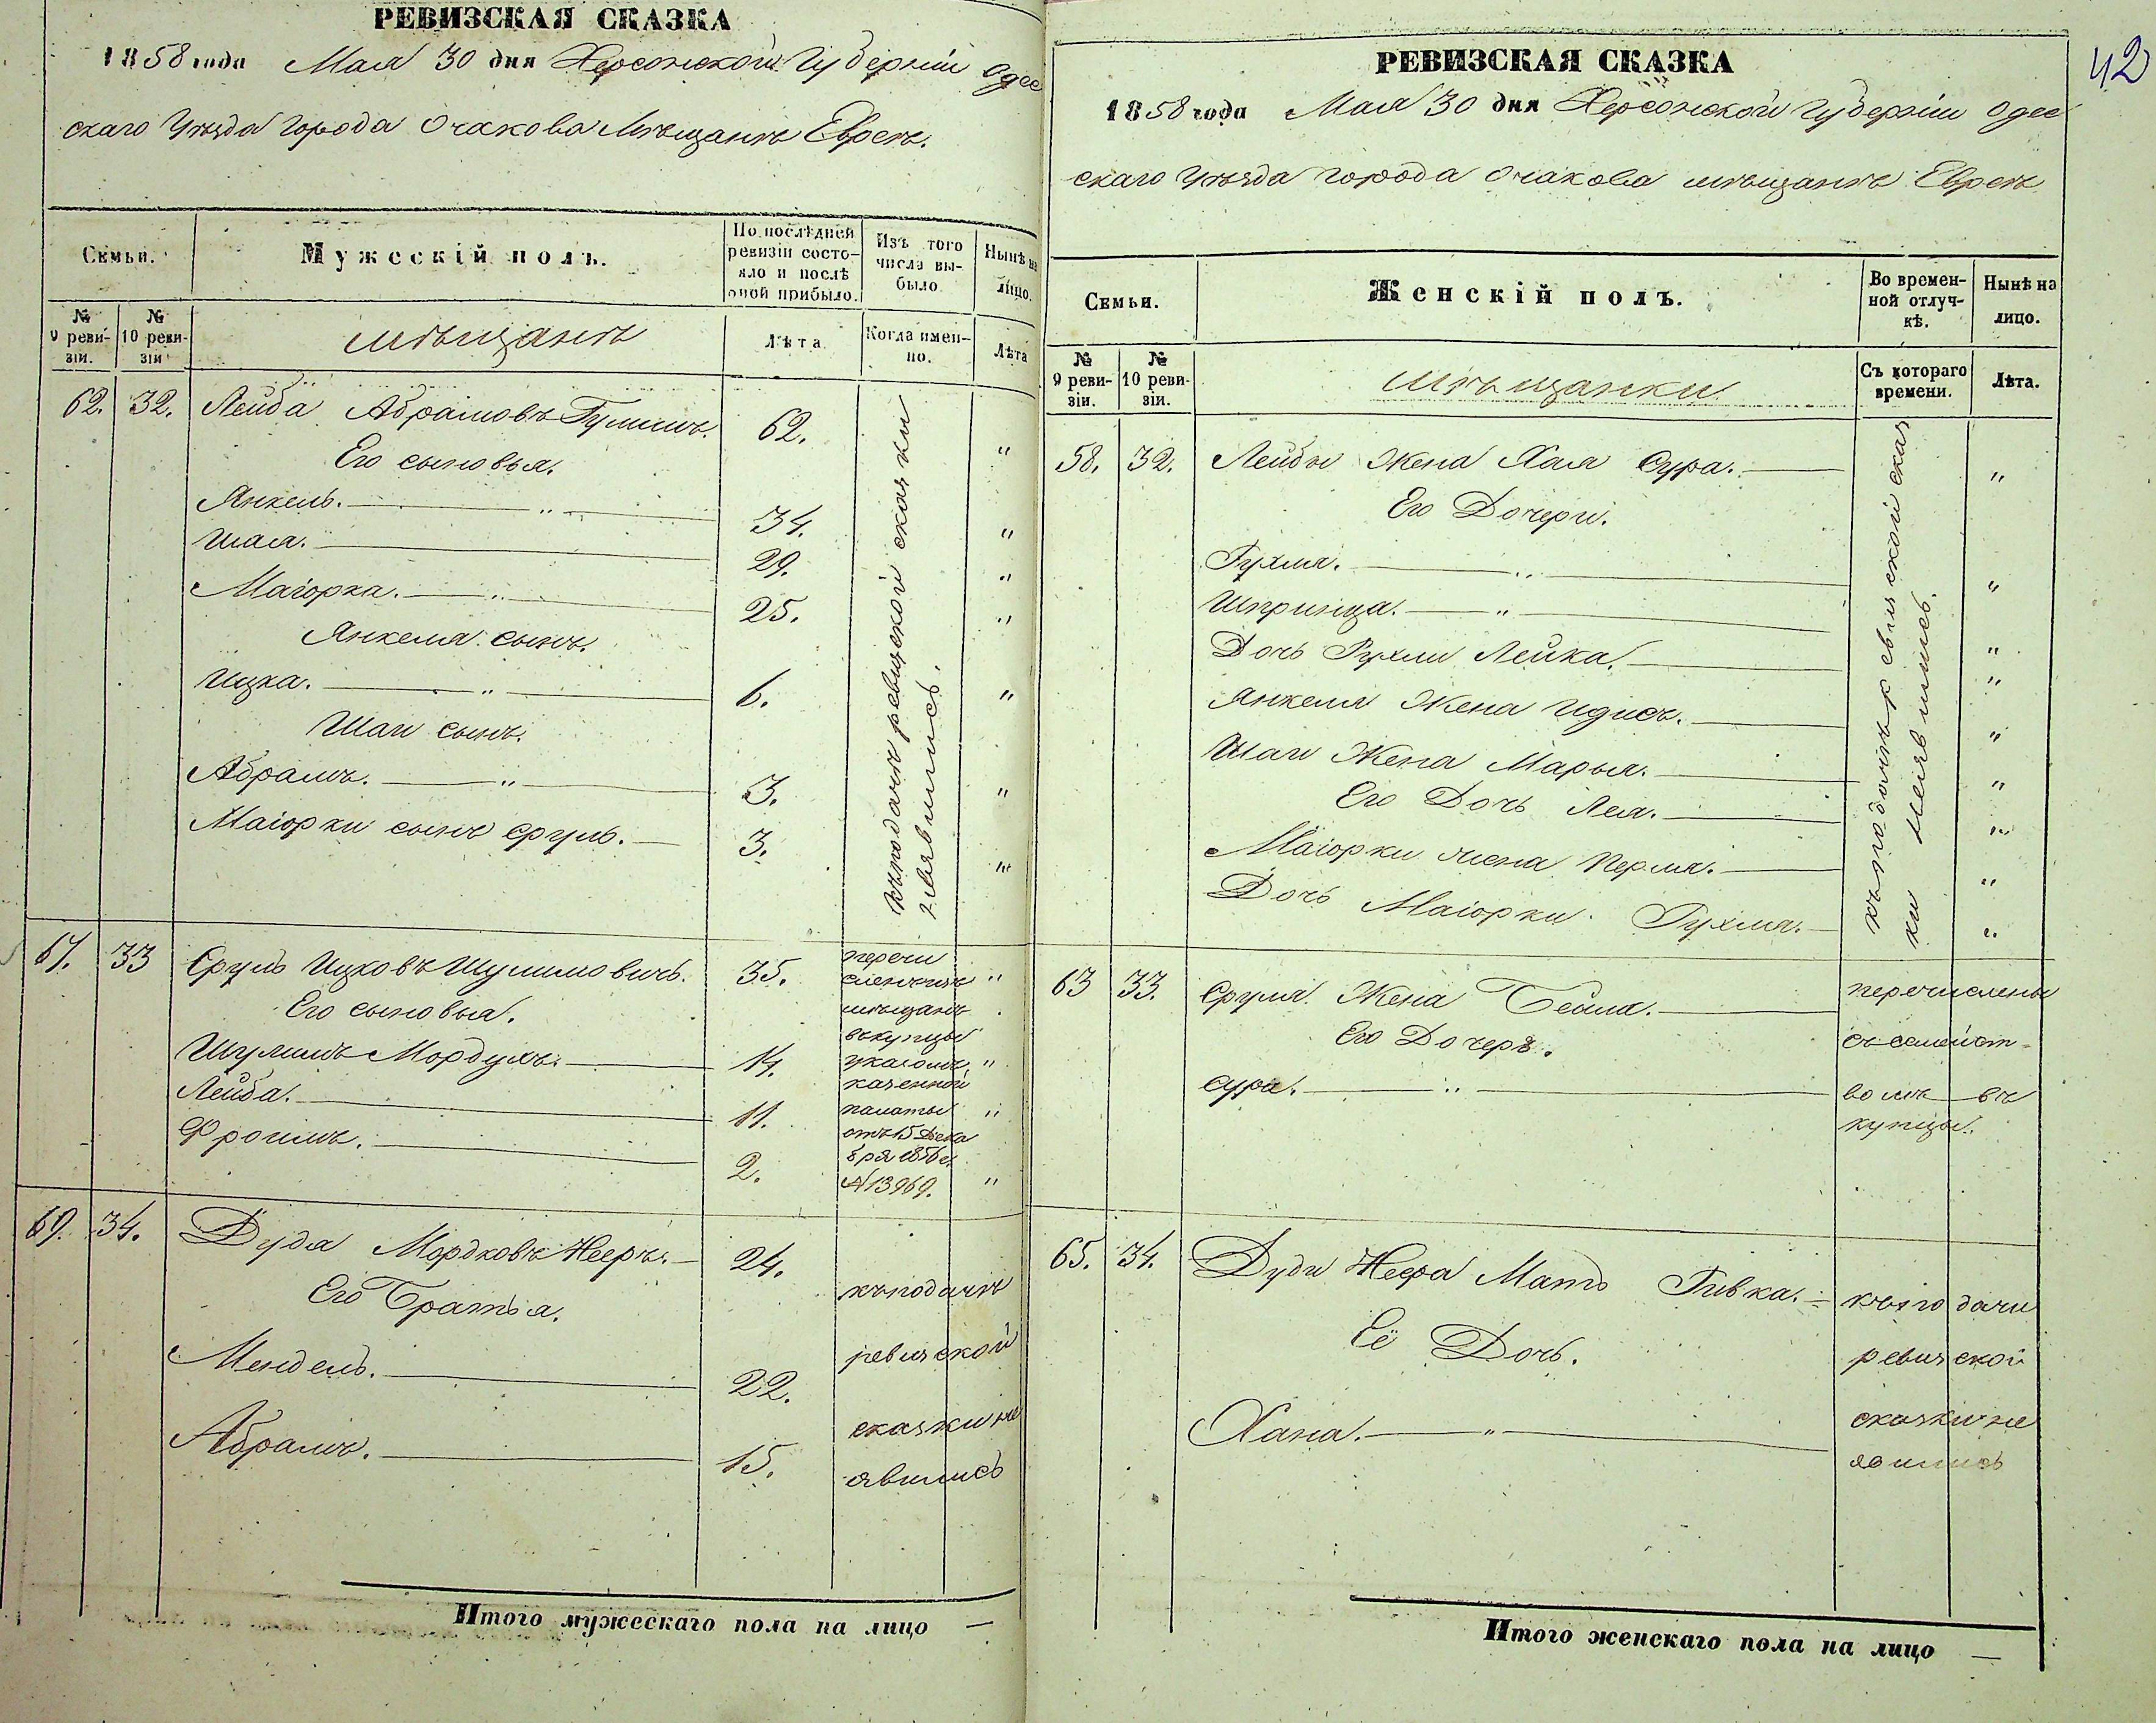 РЕВИЗСКАЯ СКАЗКА
1858 года Мая 30 дня Херсонской Губерніи Одес
скаго Уѣзда города Очакова Мѣщанъ Евреевъ.
Семьи.
Мужескій полъ.
По послѣдней ревизіи состояло и послѣ оной прибыло.
Изъ того числа выбыло
Нынѣ на лицо.
№ 9 ревизіи.
№ 10 ревизіи
мѣщанъ
Лѣта
Когда именно.
Лѣта
62. 32. Лейба Абрамовъ 62. "
Его сыновья.
Янкель. " 34. "
Шая. 29. "
Маіорка. " 25. "
Янкеля сынъ.
Ицка. " 6. "
Шаи сынъ.
Абрамъ. " 3. "
Маіорки сынъ Сруль. 3. "
къ подачѣ ревизской сказки
неявились.
67. 33 Сруль Ицковъ Шулимовичъ. 35. "
Его сыновья.
Шулимъ Мордухъ. 14. "
Лейба. 11. "
Фроимъ. 2. "
перечи
сленъ изъ
мѣщанъ
въ купцы
указомъ
казенной
палаты
отъ 15 Дека
бря 1856 г.
№ 13969.
69. 34. Дудя Мордковъ Нееръ. 24.
Его Братья.
Мендель. 22.
Абрамъ. 15.
къ подачѣ
ревизской
сказки не
явились
Итого мужескаго пола на лицо —
42
РЕВИЗСКАЯ СКАЗКА
1858 года Мая 30 дня Херсонской Губерніи Одес
скаго Уѣзда города Очакова мѣщанъ Евреевъ
Семьи.
Женскій полъ.
Во временной отлучкѣ.
Нынѣ на лицо.
№ 9 ревизіи.
№ 10 ревизіи.
мѣщанки.
Съ котораго времени.
Лѣта.
58. 32. Лейбы Жена Хая Сура. "
Его Дочери.
Рухля. " "
Шпринца. " "
Дочь Рухли Лейка. "
Янкеля Жена Идись. "
Шаи Жена Марья. "
Его Дочь Лея. "
Маіорки жена Перля. "
Дочь Маіорки Рухля. "
къ подачѣ ревизской сказ
ки неявились.
63 33. Сруля Жена Бейла.
Его Дочерь.
Сура. "
перечислены
съ семейст-
вомъ въ
купцы.
65. 34. Дуди Неера Мать Ривка.
Её Дочь.
Хана. "
къ подачи
ревизской
сказки не
явились
Итого женскаго пола на лицо —